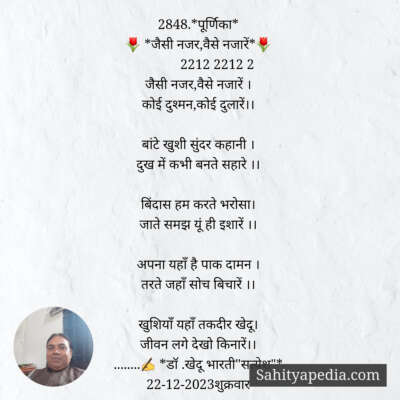 2848.*पूर्णिका*
🌹 *जैसी नजर,वैसे नजारें*🌹
2212 2212 2
जैसी नजर,वैसे नजारें ।
कोई दुश्मन,कोई दुलारें।।
बांटे खुशी सुंदर कहानी ।
दुख में कभी बनते सहारे ।।
बिंदास हम करते भरोसा।
जाते समझ यूं ही इशारें ।।
अपना यहाँ है पाक दामन ।
तरते जहाँ सोच बिचारें ।।
खुशियाँ यहाँ तकदीर खेदू।
जीवन लगे देखो किनारें।।
........✍ *डॉ .खेदू भारती"सत्येश"*
22-12-2023शुक्रवार
Sahityapedia.com